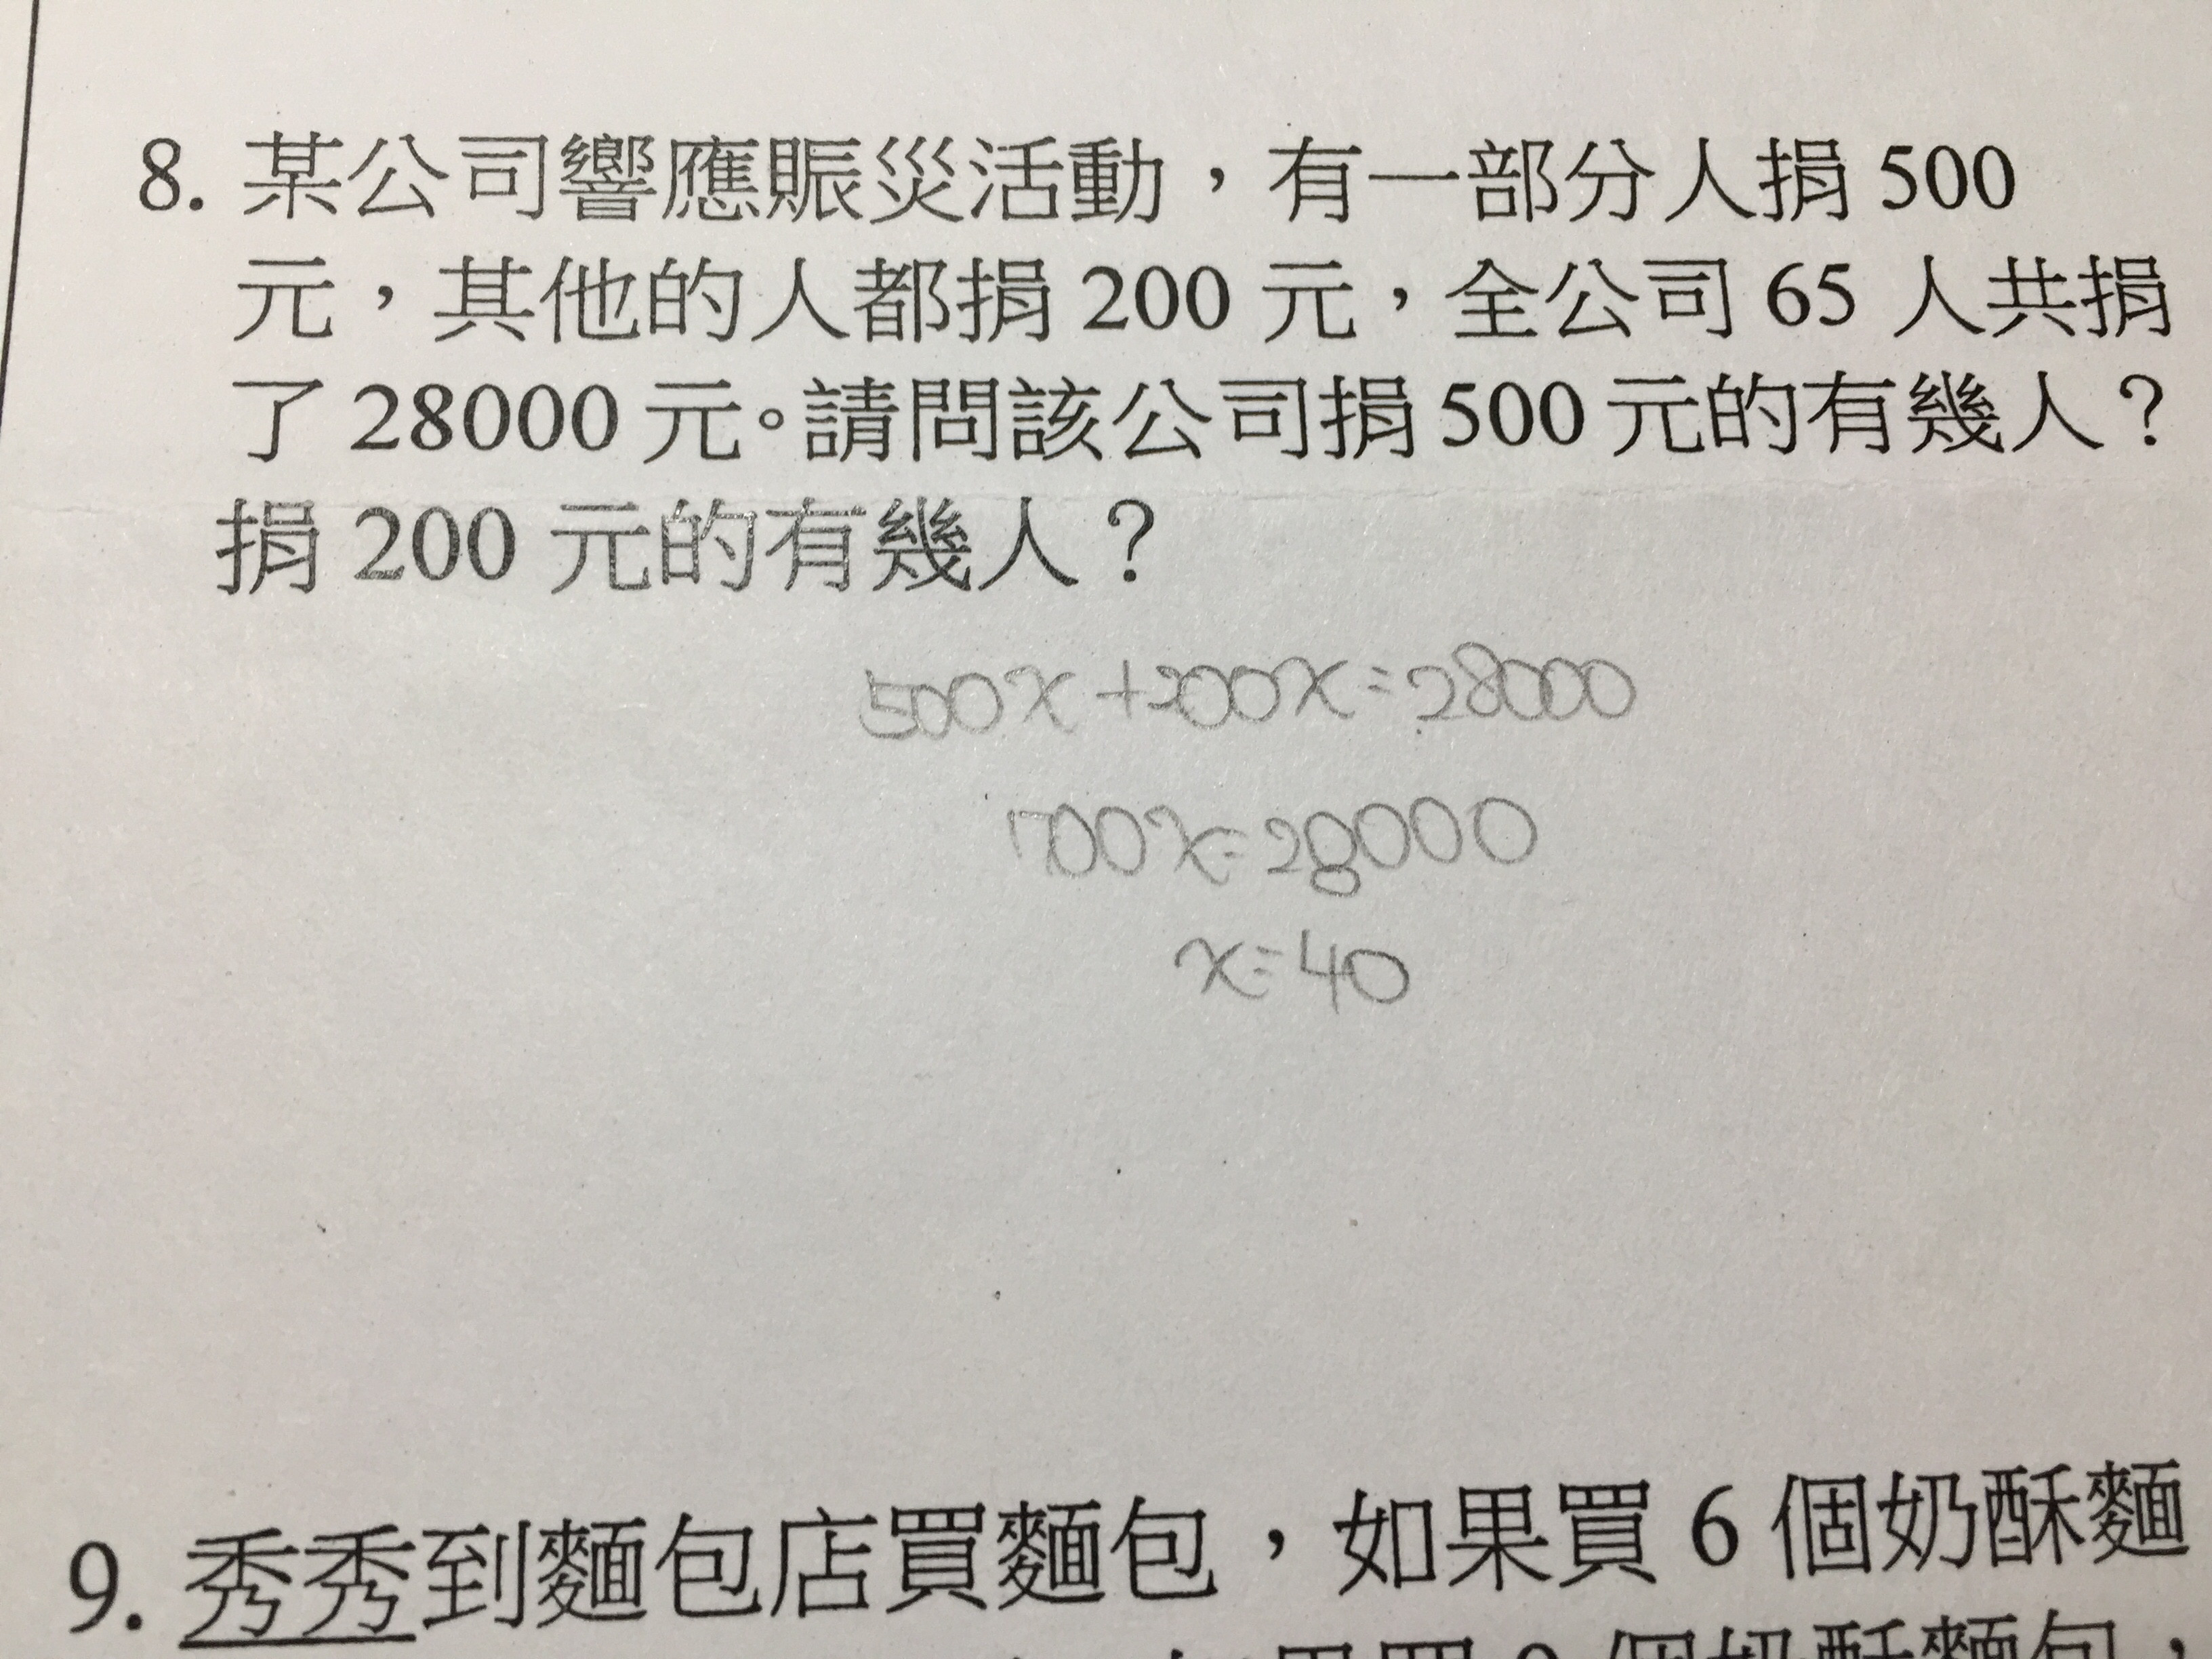 8. 某公司響應賑災活動，有一部分人捐 500
元，其他的人都捐 200 元，全公司 65 人共捐
了 28000 元。請問該公司捐 500 元的有幾人？
捐 200 元的有幾人？
500x+200x=28000
700x=28000
x=40
9. 秀秀到麵包店買麵包，如果買 6 個奶酥麵
個奶酥麵包，